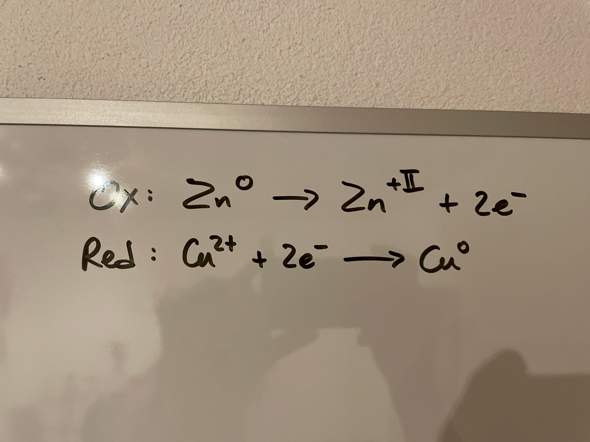 Ox: Zn⁰ → Zn⁺ᴵᴵ + 2e⁻
Red: Cu²⁺ + 2e⁻ → Cu⁰